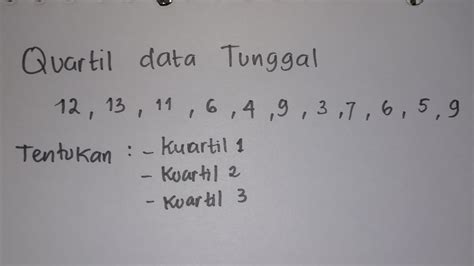 Quartil data Tunggal
12, 13, 11, 6, 4, 9, 3, 7, 6, 5, 9
Tentukan : - Kuartil 1
- Kuartil 2
- Kuartil 3